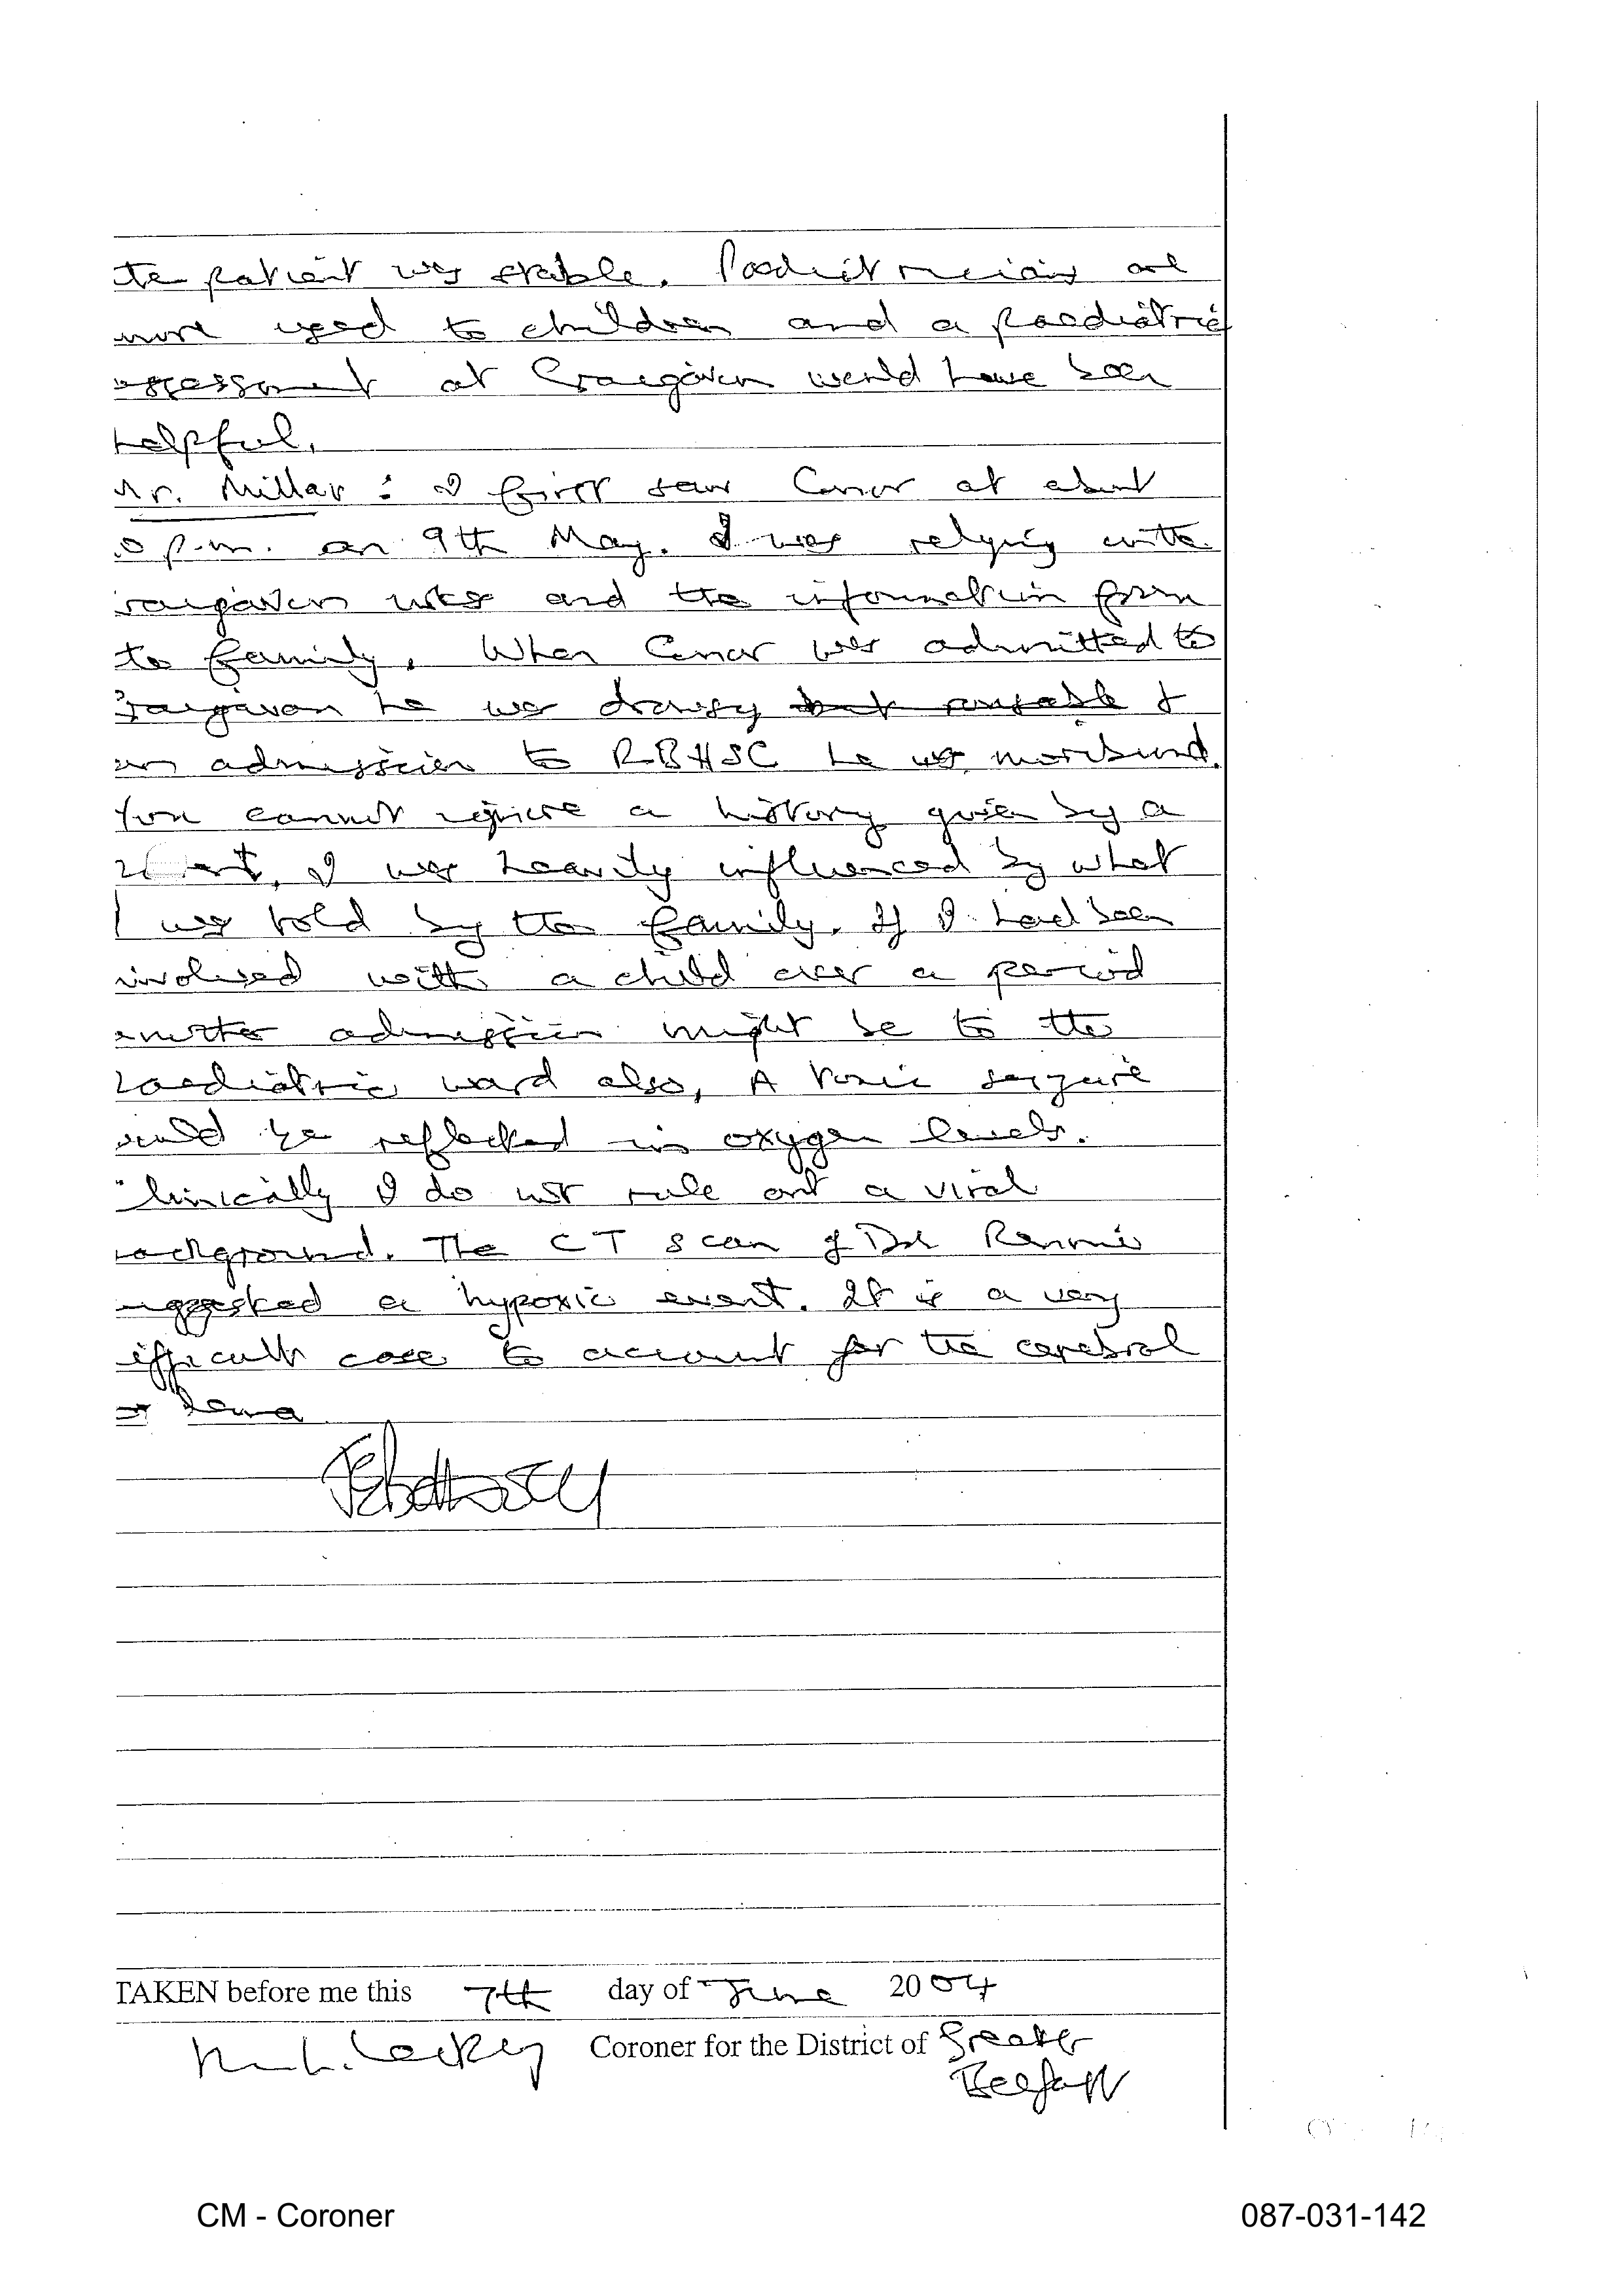 the patient was stable. Paediatricians are
more used to children and a paediatric
assessment at Craigavon would have been
helpful.
Mr. Millar : I first saw Conor at about
p.m. on 9th May. I was relying with
raigavon notes and the information from
the family. When Conor was admitted to
raigavon he was drowsy but rousable &
on admission to RBHSC he was moribund.
You cannot ignore a history given by a
I was heavily influenced by what
I was told by the family. If I had been
involved with a child over a period
another admission might be to the
paediatric ward also. A tonic seizure
would be reflected in oxygen levels.
linically I do not rule out a viral
background. The CT scan of Dr Rennie
uggested a hypoxic event. It is a very
ifficult case to account for the cerebral
oedema
TAKEN before me this 7th day of June 2004
Coroner for the District of Greater
Belfast
CM - Coroner
087-031-142